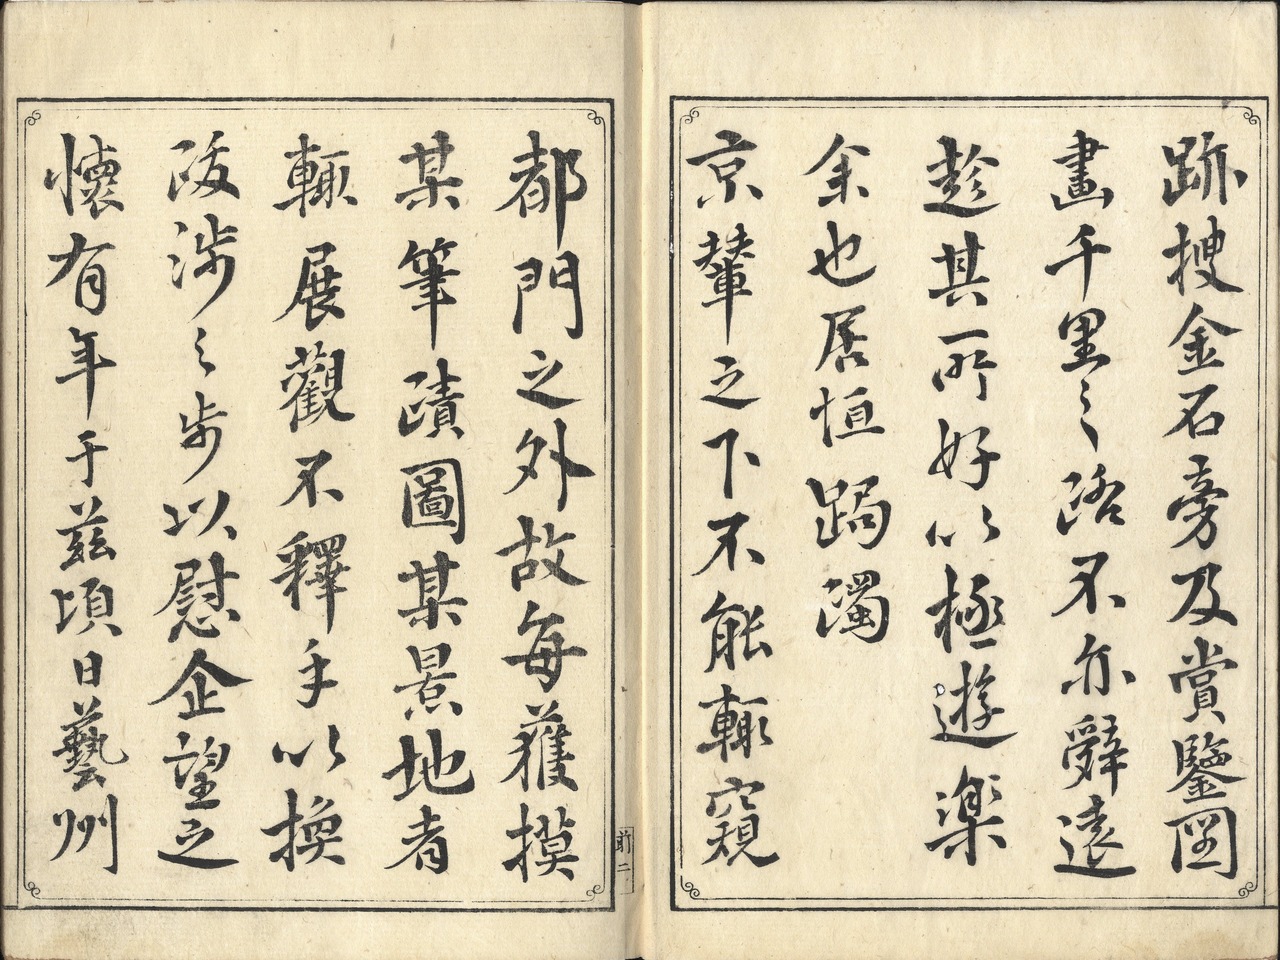 跡搜金石旁及賞鑒図
畫千里之路不亦辭遠
趁其所好以極遊楽
余也居恒跼濁
京輦之下不能輙窺
都門之外故每獲摸
某筆蹟圖某景地者
輙展觀不釋手以換
跋涉之步以慰企望之
懷有年于茲頃日藝州
前二